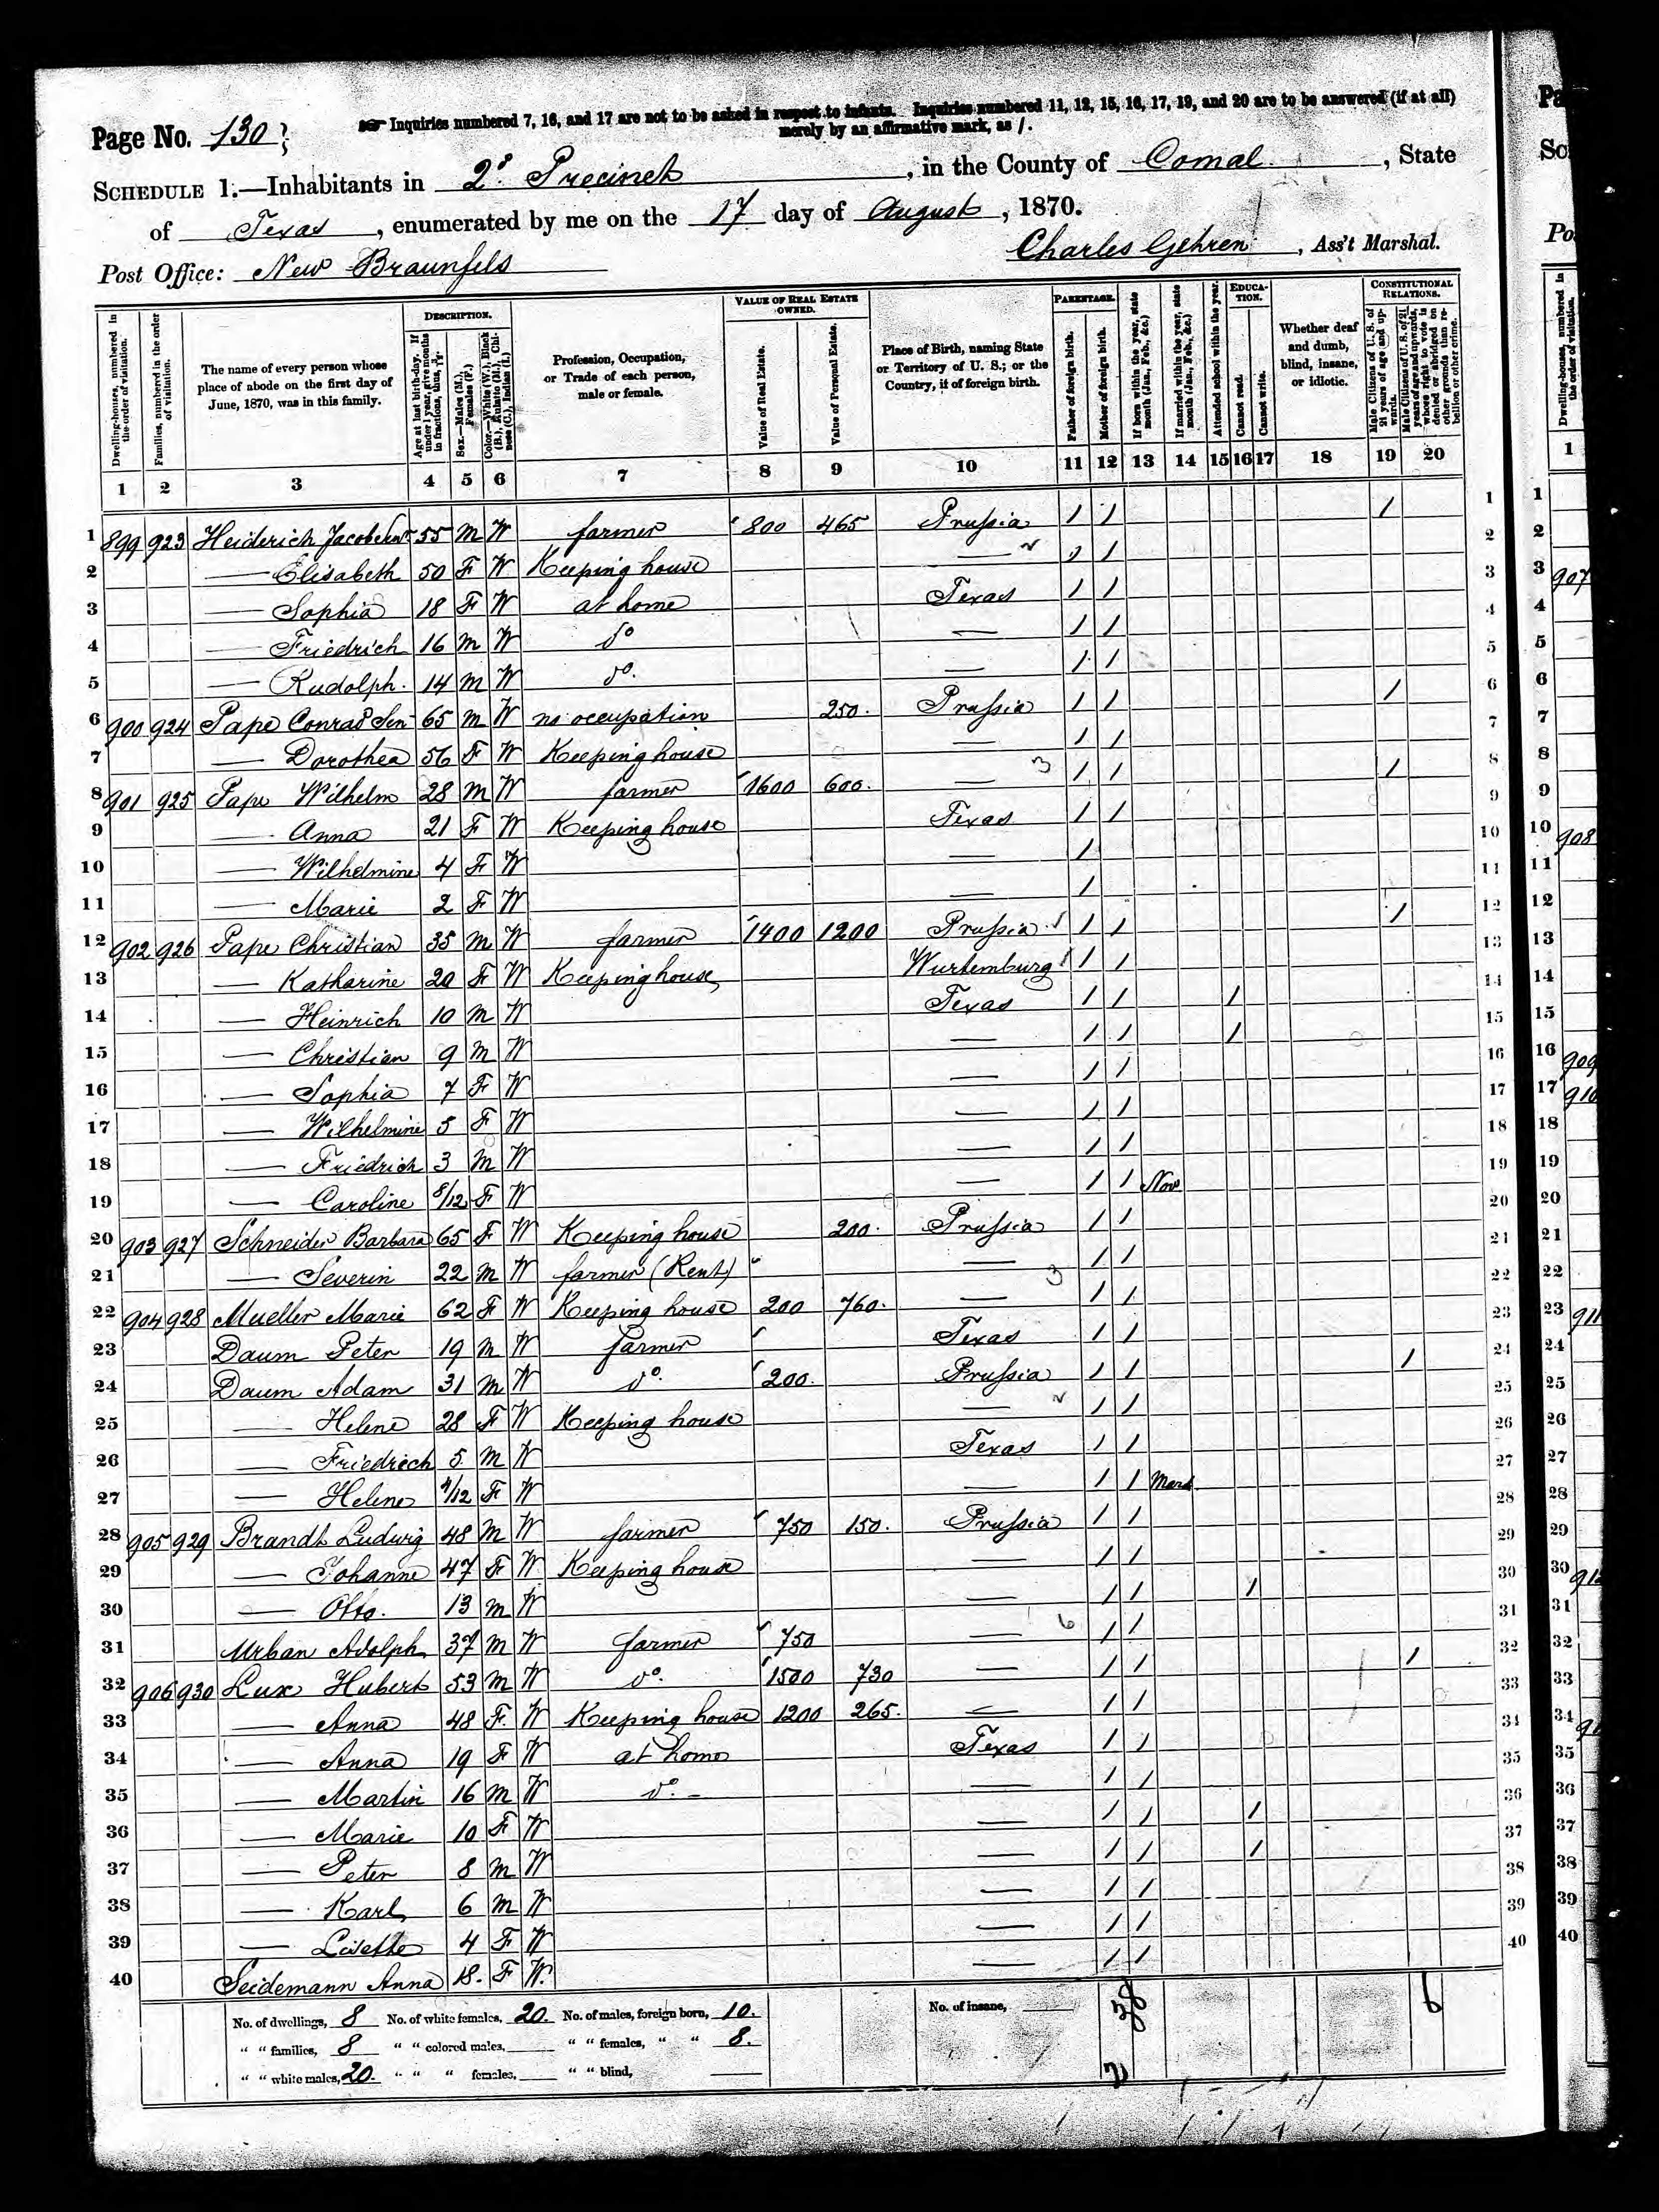 Page No. 130
Inquiries numbered 7, 16, and 17 are not to be asked in respect to infants. Inquiries numbered 11, 12, 15, 16, 17, 19, and 20 are to be answered (if at all)
merely by an affirmative mark, as /.
SCHEDULE 1.—Inhabitants in 2d Precinct, in the County of Comal, State
of Texas, enumerated by me on the 17 day of August, 1870.
Post Office: New Braunfels
Charles Gehren, Ass't Marshal.
DESCRIPTION. VALUE OF REAL ESTATE OWNED. PARENTAGE. EDUCATION. CONSTITUTIONAL RELATIONS.
Dwelling-houses, numbered in the order of visitation.
Families, numbered in the order of visitation.
The name of every person whose place of abode on the first day of June, 1870, was in this family.
Age at last birth-day. If under 1 year, give months in fractions, thus, 3/12.
Sex.—Males (M.), Females (F.)
Color.—White (W.), Black (B.), Mulatto (M.), Chinese (C.), Indian (I.)
Profession, Occupation, or Trade of each person, male or female.
Value of Real Estate.
Value of Personal Estate.
Place of Birth, naming State or Territory of U. S.; or the Country, if of foreign birth.
Father of foreign birth.
Mother of foreign birth.
If born within the year, state month (Jan., Feb., &c.)
If married within the year, state month (Jan., Feb., &c.)
Attended school within the year.
Cannot read.
Cannot write.
Whether deaf and dumb, blind, insane, or idiotic.
Male Citizens of U. S. of 21 years of age and upwards.
Male Citizens of U. S. of 21 years of age and upwards, whose right to vote is denied or abridged on other grounds than rebellion or other crime.
1 2 3 4 5 6 7 8 9 10 11 12 13 14 15 16 17 18 19 20
1 899 923 Heiderich Jacob 55 M W farmer 800 465 Prussia / / / 1
2 — Elisabeth 50 F W Keeping house — / / 2
3 — Sophia 18 F W at home Texas / / 3
4 — Friedrich 16 M W do — / / 4
5 — Rudolph. 14 M W do. — / / 5
6 900 924 Pape Conrad Sen 65 M W no occupation 250. Prussia / / / 6
7 — Dorothea 56 F W Keeping house — / / 7
8 901 925 Pape Wilhelm 28 M W farmer 1600 600. — 3 / / / 8
9 — Anna 21 F W Keeping house Texas / / 9
10 — Wilhelmine 4 F W — / 10
11 — Marie 2 F W — / 11
12 902 926 Pape Christian 35 M W farmer 1400 1200 Prussia / / / 12
13 — Katharine 20 F W Keeping house Wurtemburg / / 13
14 — Heinrich 10 M W Texas / / / 14
15 — Christian 9 M W — / / / 15
16 — Sophia 7 F W — / / 16
17 — Wilhelmine 5 F W — / / 17
18 — Friedrich 3 M W — / / 18
19 — Caroline 8/12 F W — / / Nov 19
20 903 927 Schneider Barbara 65 F W Keeping house 200. Prussia / / 20
21 — Severin 22 M W farmer (Rent) — / / 21
22 904 928 Mueller Marie 62 F W Keeping house 200 760. — 3 / / 22
23 Daum Peter 19 M W farmer Texas / / 23
24 Daum Adam 31 M W do. 200. Prussia / / / 24
25 — Helene 28 F W Keeping house — / / 25
26 — Friedrich 5 M W Texas / / 26
27 — Helene /12 F W — / / 27
28 905 929 Brandt Ludwig 48 M W farmer 750 150. Prussia / / 28
29 — Johanne 47 F W Keeping house — / / 29
30 — Otto. 13 M W — / / / 30
31 Urban Adolph 37 M W farmer 750 — 6 / / 31
32 906 930 Lux Hubert 53 M W do. 1500 730 — / / / 32
33 — Anna 48 F. W Keeping house 1200 265. — / / 33
34 — Anna 19 F W at home Texas / / 34
35 — Martin 16 M W do. — / / 35
36 — Marie 10 F W — / / / 36
37 — Peter 8 M W — / / / 37
38 — Karl 6 M W — / / 38
39 — Lisette 4 F W — / / 39
40 Seidemann Anna 18. F W. — / / 40
No. of dwellings, 8 No. of white females, 20. No. of males, foreign born, 10. No. of insane, 38 6
" " families, 8 " " colored males, " " females, " " 8.
" " white males, 20. " " " females, " " blind,